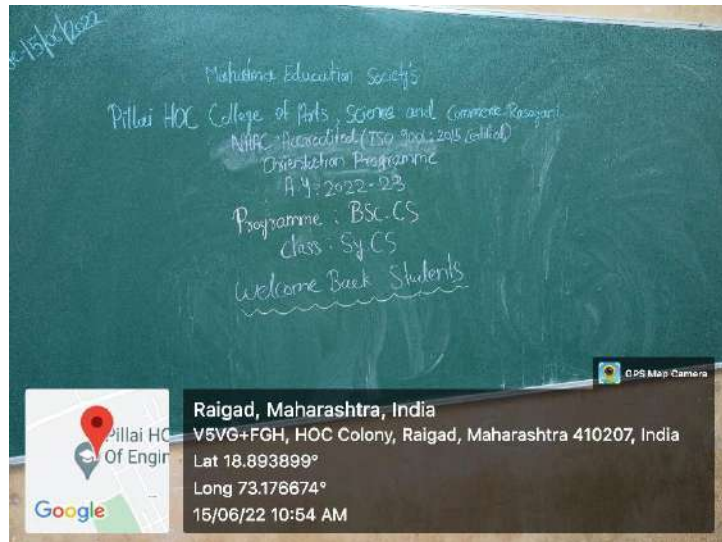 15/06/2022
Mahatma Education Society's
Pillai HOC College of Arts, Science and Commerce Rasayani
NAAC Accredited (ISO 9001:2015 Certified)
Orientation Programme
A.Y: 2022-23
Programme : BSC.CS
Class : Sy CS
Welcome Back Students
GPS Map Camera
Pillai HO
Of Engin
Google
Raigad, Maharashtra, India
V5VG+FGH, HOC Colony, Raigad, Maharashtra 410207, India
Lat 18.893899°
Long 73.176674°
15/06/22 10:54 AM